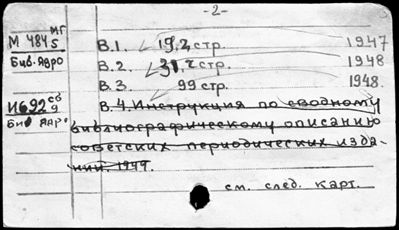 -2-
М 484 мг/5
Биб. Ядро
И692 сб/9
Биб Ядро
В.1. 19,2 стр. 1947
В.2. 31,2 стр. 1948
В.3. 99 стр. 1948.
В.4. Инструкция по сводному
библиографическому описанию
советских периодических изда-
ний. 1949.
см. след. карт.